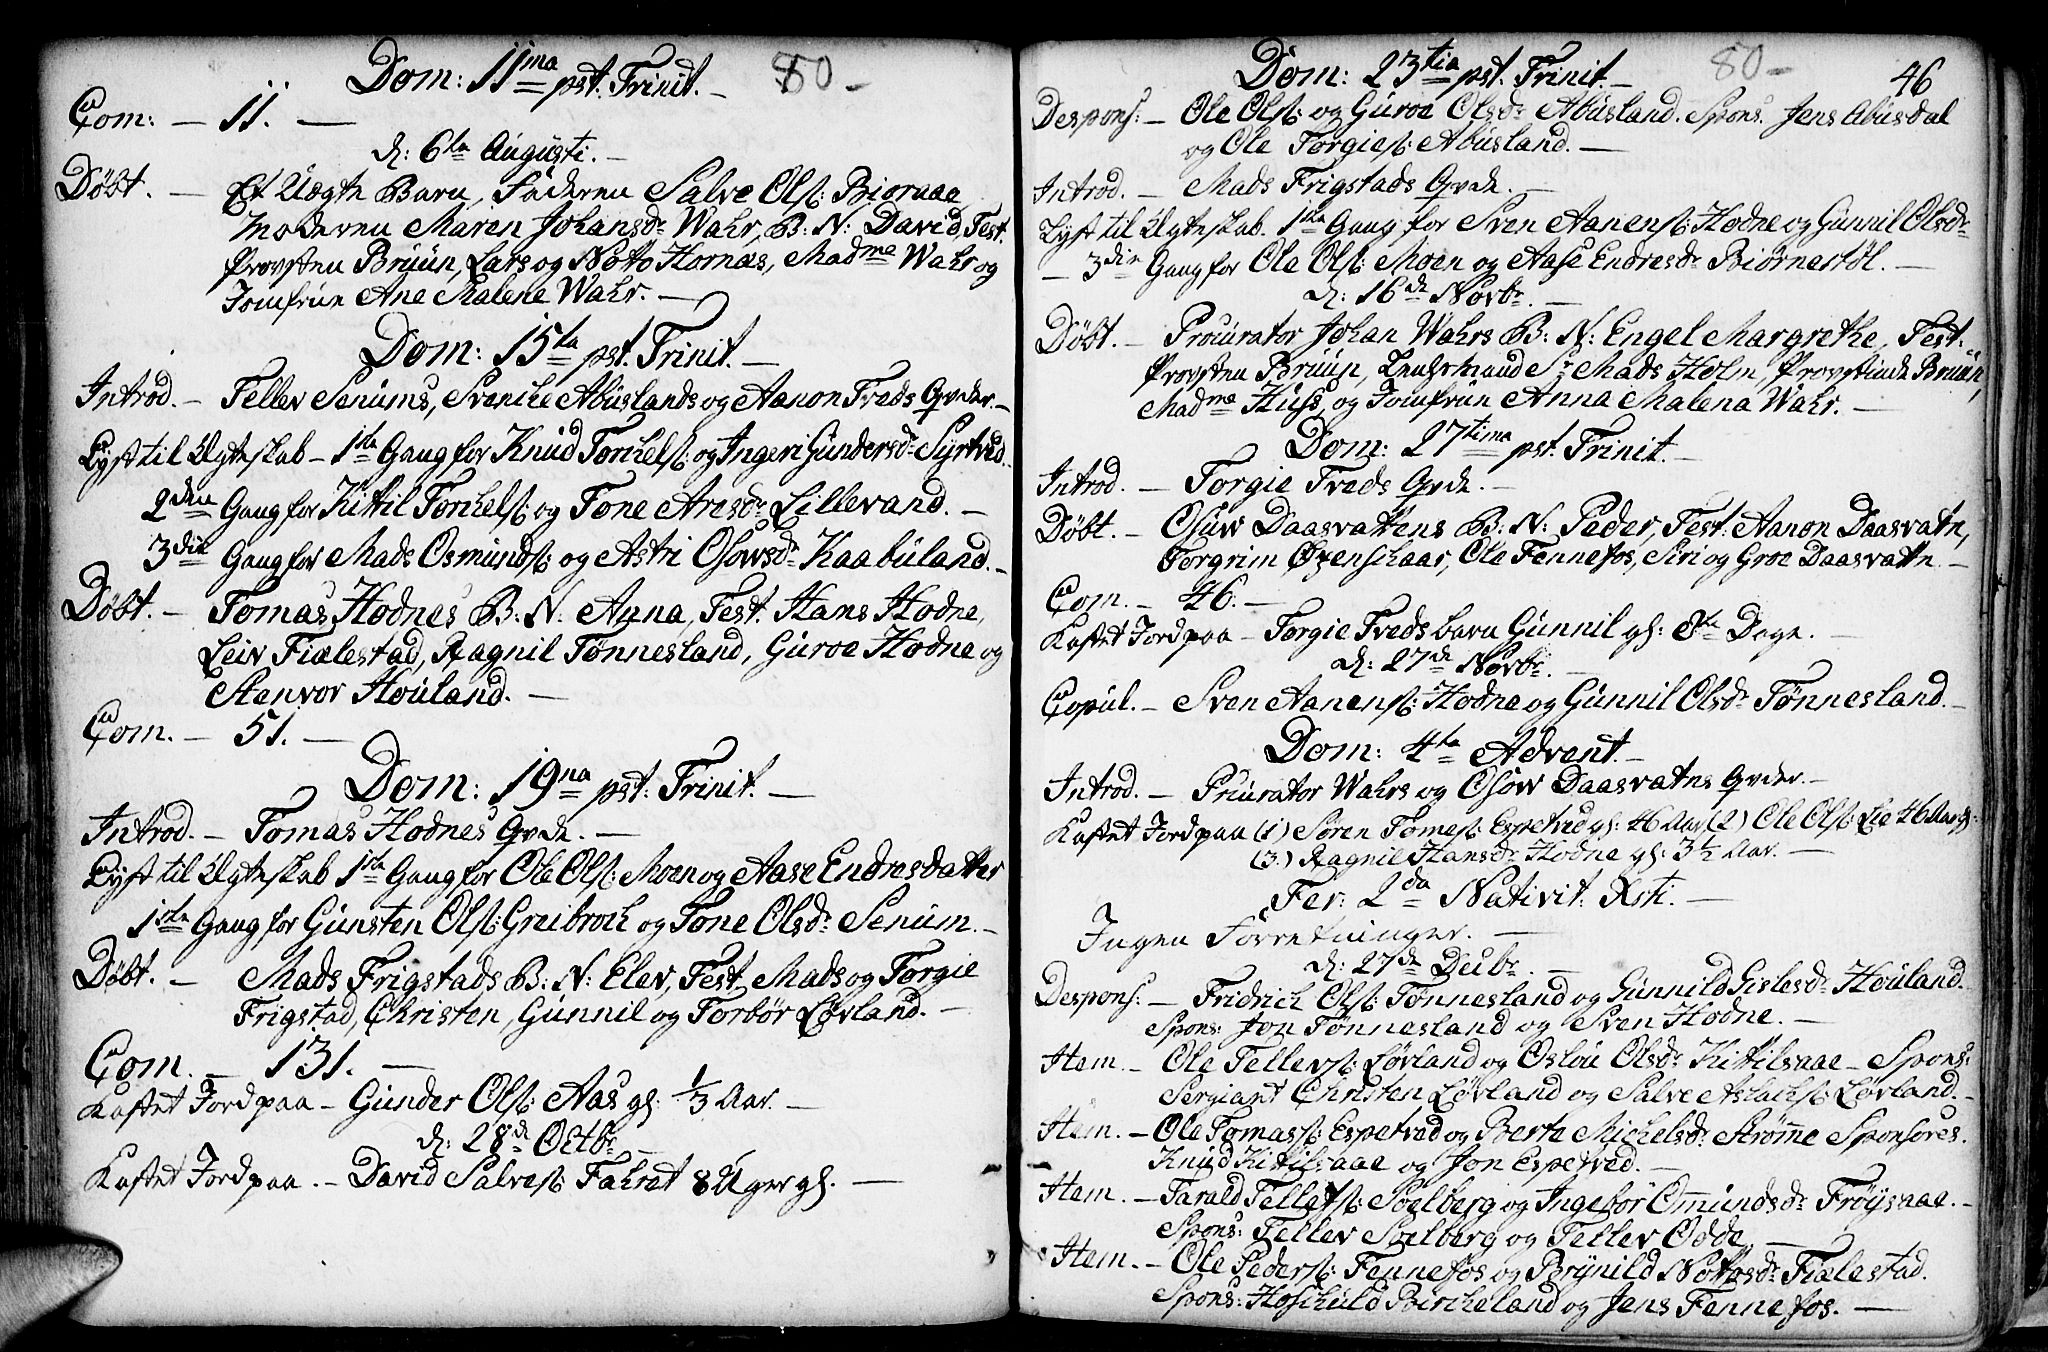 Dom: 11ma pst. Trinit. – 80 –
Com: – 11. –
d: 6te Augusti. –
Döbt. – Et Uægte Barn, Faderen Salve Ols: Bioraae,
Moderen Maren Johansdr Wahr, B: N: David, Test.
Provsten Bruun, Lars og Notto Hornæs, Madme Wahr og
Jomfrue Ane Malene Wahr. –
Dom: 15ta pst. Trinit. –
Introd. – Tellev Senums, Svenike Abuslands og Aanon Treds Qvder. –
Lyst til Ægteskab – 1ste Gang for Knud Torkels: og Ingeri Gundersdr Syrtved.
2den Gang for Kittil Torkels: og Tone Aresdr Lillevand. –
3die Gang for Mads Osmunds: og Astri Osowsdr Kaabuland. –
Döbt. – Tomas Hodnes B: N: Anna, Test. Hans Hodne,
Leiv Fiælestad, Ragnil Tönnesland, Guroe Hodne og
Stenvor Houland. –
Com. – 51. –
Dom: 19na pst: Trinit. –
Introd. – Tomas Hodnes Qvde. –
Lyst til Ægteskab 1ste Gang for Ole Ols: Moen og Aase Endresdatter
1ste Gang for Gunsten Ols: Greibrock og Tone Olsdr Senum. –
Döbt. – Mads Frigstads B: N: Elev, Test. Mads og Torgie
Frigstad, Christen, Gunnil og Torbör Lövland. –
Com. – 131. –
Kastet Jord paa – Gunder Ols: Aas gl: 1/3 Aar. –
d: 28de Octbr –
Kastet Jord paa. – David Salves: Fahret 8 Uger gl. –
Dom: 23tia pst. Trinit. – 80 – 46
Despons: – Ole Ols: og Guroe Olsdr Abusland. Spons. Jens Abusdal
og Ole Torgies: Abusland. –
Introd. – Mads Frigstads Qvde. –
Lyst til Ægteskab. 1ste Gang for Sven Aanens: Hodne og Gunnil Olsdr
– 3die Gang for Ole Ols: Moen og Aase Endresdr Biörnestöl. –
d: 16de Novbr. –
Döbt. – Procurator Johan Wahrs B: N: Engel Margrethe, Test:
Provsten Bruun, Lensmand Sr Mads Holm, Provstinde Bruun,
Madme Huss, og Jomfrue Anna Malena Wahr. –
Dom: 27tima pst. Trinit. –
Introd. – Torgie Treds Qvde. –
Döbt. – Osuw Daasvattens B: N: Peder, Test: Aanon Daasvatn,
Torgrim Özenskaar, Ole Fennefos, Siri og Groe Daasvatn. –
Com. – 46. –
Kastet Jord paa – Torgie Treds barn Gunnil gl: Dage. –
d: 27de Novbr. –
Copul. – Sven Aanens: Hodne og Gunnil Olsdr Tönnesland. –
Dom: 4ta Advent. –
Introd. – Priurator Wahrs og Osow Daasvatns Qvder. –
Kastet Jord paa (1) Sören Tomes: Espetvid gl: 46 Aar (2) Ole Ols: Lie 46 Aar gl:
(3.) Ragnil Hansdr Hodne gl: 3 1/2 Aar. –
Fer: 2da Nativit: Xsti. –
Ingen Forretninger. –
d: 27de Decbr. –
Despons: – Fridrich Ols: Tönnesland og Gunnild Gislesdr Houland.
Spons: Jon Tönnesland og Sven Hodne. –
Item. – Ole Tellevs: Lövland og Oslou Olsdr Kittilsaae – Spons:
Sergiant Christen Lövland og Salve Aslachs: Lövland. –
Item. – Ole Tomass: Espetved og Berte Michelsdr Strömme Sponsores.
Knud Kittilsaae og Jon Espetved. –
Item. – Tarald Tellefs: Soelberg og Ingebor Omundsdr Fröysaae. –
Spons: Tellev Soelberg og Tellev Odde. –
Item. – Ole Peders: Fennefos og Brynild Nottosdr Fiælestad.
Spons: Hoskuld Bircheland og Jens Fennefos. –